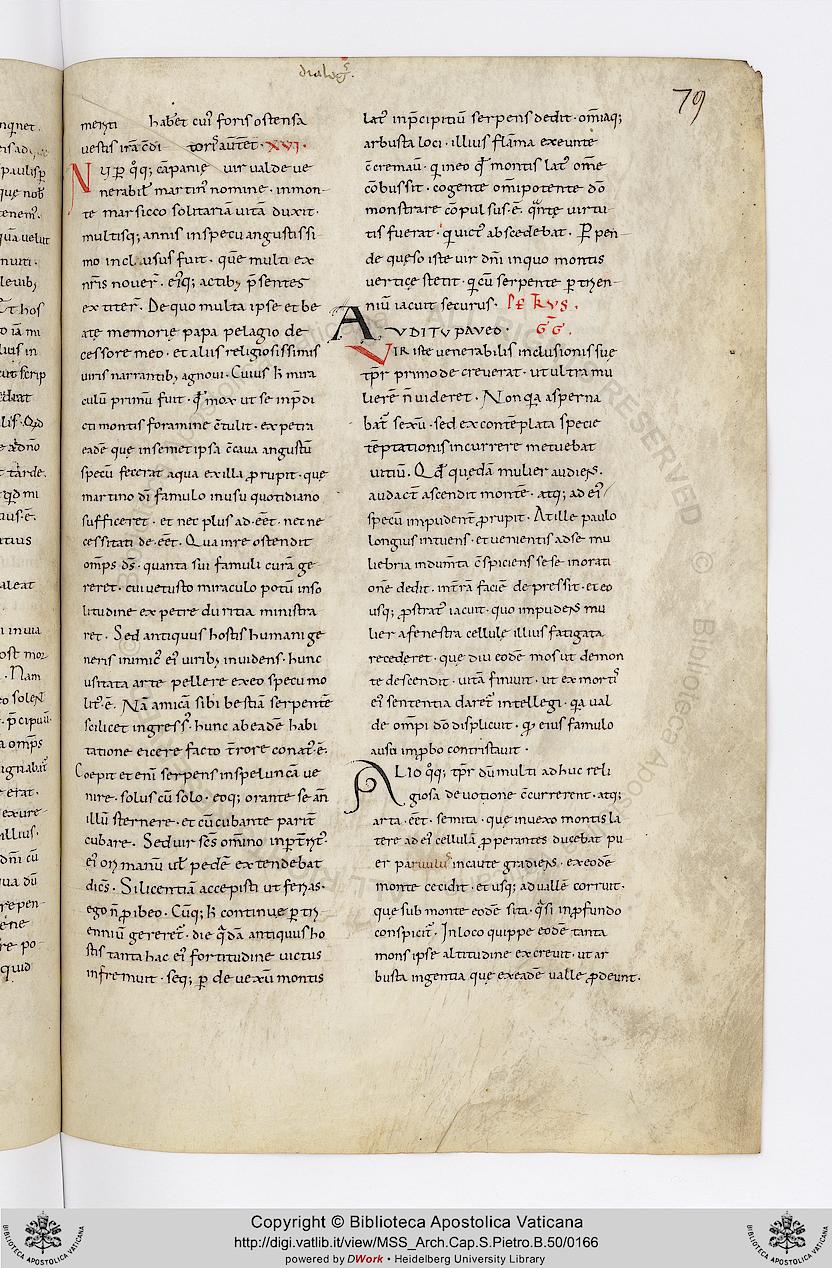 dialog᷒
79
menti habet cui' foris ostensa
vestis irā cōdi tori' autēt̄· XVI·
Nup q̊q; cāpanię vir valde ve
nerabil' martin' nomine · inmon-
te marsicco solitariā vitā duxit·
multisq; annis inspecu angustissi
mo inclusus fuit · quē multi ex
nr̄is nover̄· ei'q; actib; p̄sentes
extiter̄· De quo multa ipse et be
atę memorię papa pelagio de
cessore meo · et aliis religiosissimis
viris narrantib; agnovi · Cuius h̄ mira
culū primū fuit · qđ mox ut se inp̄di
cti montis foramine c̄tulit · ex petra
eadē que insemet ipsa c̄cava angustū
specū fecerat aqua exilla prupit · que
martino dī famulo inusu quotidiano
sufficeret · et nec plus ad·eēt· nec ne
cessitati de·eēt· Qua inre ostendit
omp̄s d̄s· quanta sui famuli curā ge
reret · cui vetusto miraculo potū inso
litudine ex petrę duritia ministra
ret · Sed antiquus hostis humani ge
neris inimic' ei' virib; invidens · hunc
usitata arte pellere exeo specu mo
lit'·ē· Nā amicā sibi bestiā serpentē
scilicet ingress'· hunc abeadē habi
tatione eicere facto t̄rore conat'·ē·
Coepit et eni serpens inspeluncā ve
nire · solus cū solo · eoq; orante se an̄
illū sternere · et cū cubante parit̄
cubare · Sed vir sc̄s omnino inpt̄rit'·
ei' ori manū ul' pedē extendebat
dicēs · Si licentiā accepisti ut ferias·
ego n̄ phibeo · Cūq; h̄ continue p tri
enniū gereret̄· die qādā antiquus ho
stis tanta hac ei' fortitudine victus
infremuit · seq; p devexū montis
lat' inp̄cipitiū serpens dedit · omiaq;
arbusta loci · illius flāma exeunte
c̄cremavit · qui neo qđ montis lat' om̄e
cōbussit · cogente omipotente dō
monstrare cōpulsus·ē· quāte virtu
tis fuerat · qui vict' abscedebat · P pen-
de queso iste vir dn̄i inquo montis
vertice stetit · qui cū serpente p trien-
niū iacuit securus · PETRVS·
AVDITV PAVEO· GG·
VIR iste venerabilis inclusionis suę
tp̄r primo decreverat · ut ultra mu
lierē n̄ videret · Non quia asperna
bat' sexū · sed ex contēplata specie
tēptationis incurrere metuebat
vitiū · Qđ quędā mulier audiens·
audact̄ ascendit montē · atq; ad ei'
specū impudent' prupit · At ille paulo
longius intuens · et venientis ad se mu
liebria indum̄ta c̄spiciens sese inorati
onē dedit · int̄rā faciē depressit · et eo
usq; pstrat' iacuit · quo impudens mu
lier a fenestra cellulę illius fatigata
recederet · que diu eodē mos ut demon
te descendit · vitā finivit · ut ex morti'
ei' sententia daret' intellegi · qa val
de om̄pi dō displicuit · qđ eius famulo
ausu improbo contristavit·
ALIO q̊q; tp̄r dū multi adhuc reli
giosa devotione c̄currerent · atq;
arta·eēt· semita · que invexo montis la
tere ad ei' cellulā pperantes ducebat pu
er parvulus incaute gradiens · exeodē
monte cecidit · et usq; ad vallē corruit·
que sub monte eodē sita · quasi inpfundo
conspicit'· In loco quippe eodē tanta
mons ipse altitudine excrevit · ut ar
busta ingentia que exeadē valle pdeunt·
Copyright © Biblioteca Apostolica Vaticana
http://digi.vatlib.it/view/MSS_Arch.Cap.S.Pietro.B.50/0166
powered by DWork • Heidelberg University Library
BIBLIOTECA APOSTOLICA VATICANA
BIBLIOTECA APOSTOLICA VATICANA